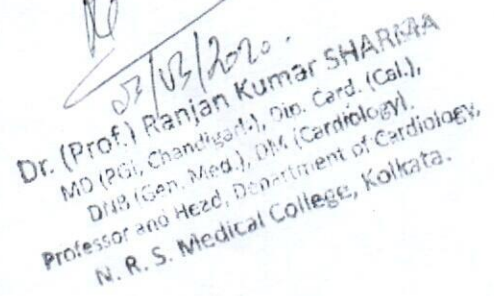 03/03/2020.
Dr. (Prof.) Ranjan Kumar SHARMA
MD (PGI, Chandigarh), Dip. Card. (Cal.),
DNB (Gen. Med.), DM (Cardiology).
Professor and Head, Department of Cardiology,
N. R. S. Medical College, Kolkata.